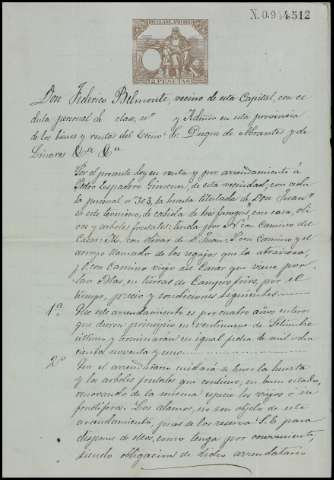 N.0.914,512
Don Federico Belmonte, vecino de esta Capital, con ce
dula personal de clase, nº y Admor en esta provincia
de los bienes y rentas del Excmo. Sr. Duque de Abrantes y de
Linares &ª &ª
Por el presente doy en renta y por arrendamiento á
Pedro Espadero Gimenez, de esta vecindad, con cedu
la personal nº 303, la huerta titulada de Don Juan,
de este término, de cabida de dos fanegas, con casa, oli
vos y arboles frutales; linda por N. con Camino del
Casar, M. con olivar de S. Juan, S. con Camino y el
arroyo llamado de los regajos que la atraviesa,
y P. con Camino viejo del Casar que viene por
San Blas, en tierras de Campo frio por el
tiempo, precio y condiciones siguientes
1ª Que este arrendamiento es por cuatro años enteros
que dieron principio en veintinueve de Setiembre
último y terminarán en igual fecha de mil ocho
cientos noventa y uno
2ª Que el arrendatario cuidará de tener la huerta
y los arboles frutales que contiene, en buen estado,
renovando de la misma especie los viejos o in
fructiferos. Los alamos, no son objeto de este
arrendamiento, pues se los reserva S.E. para
disponer de ellos, como tenga por conveniente,
siendo obligacion de dicho arrendatario